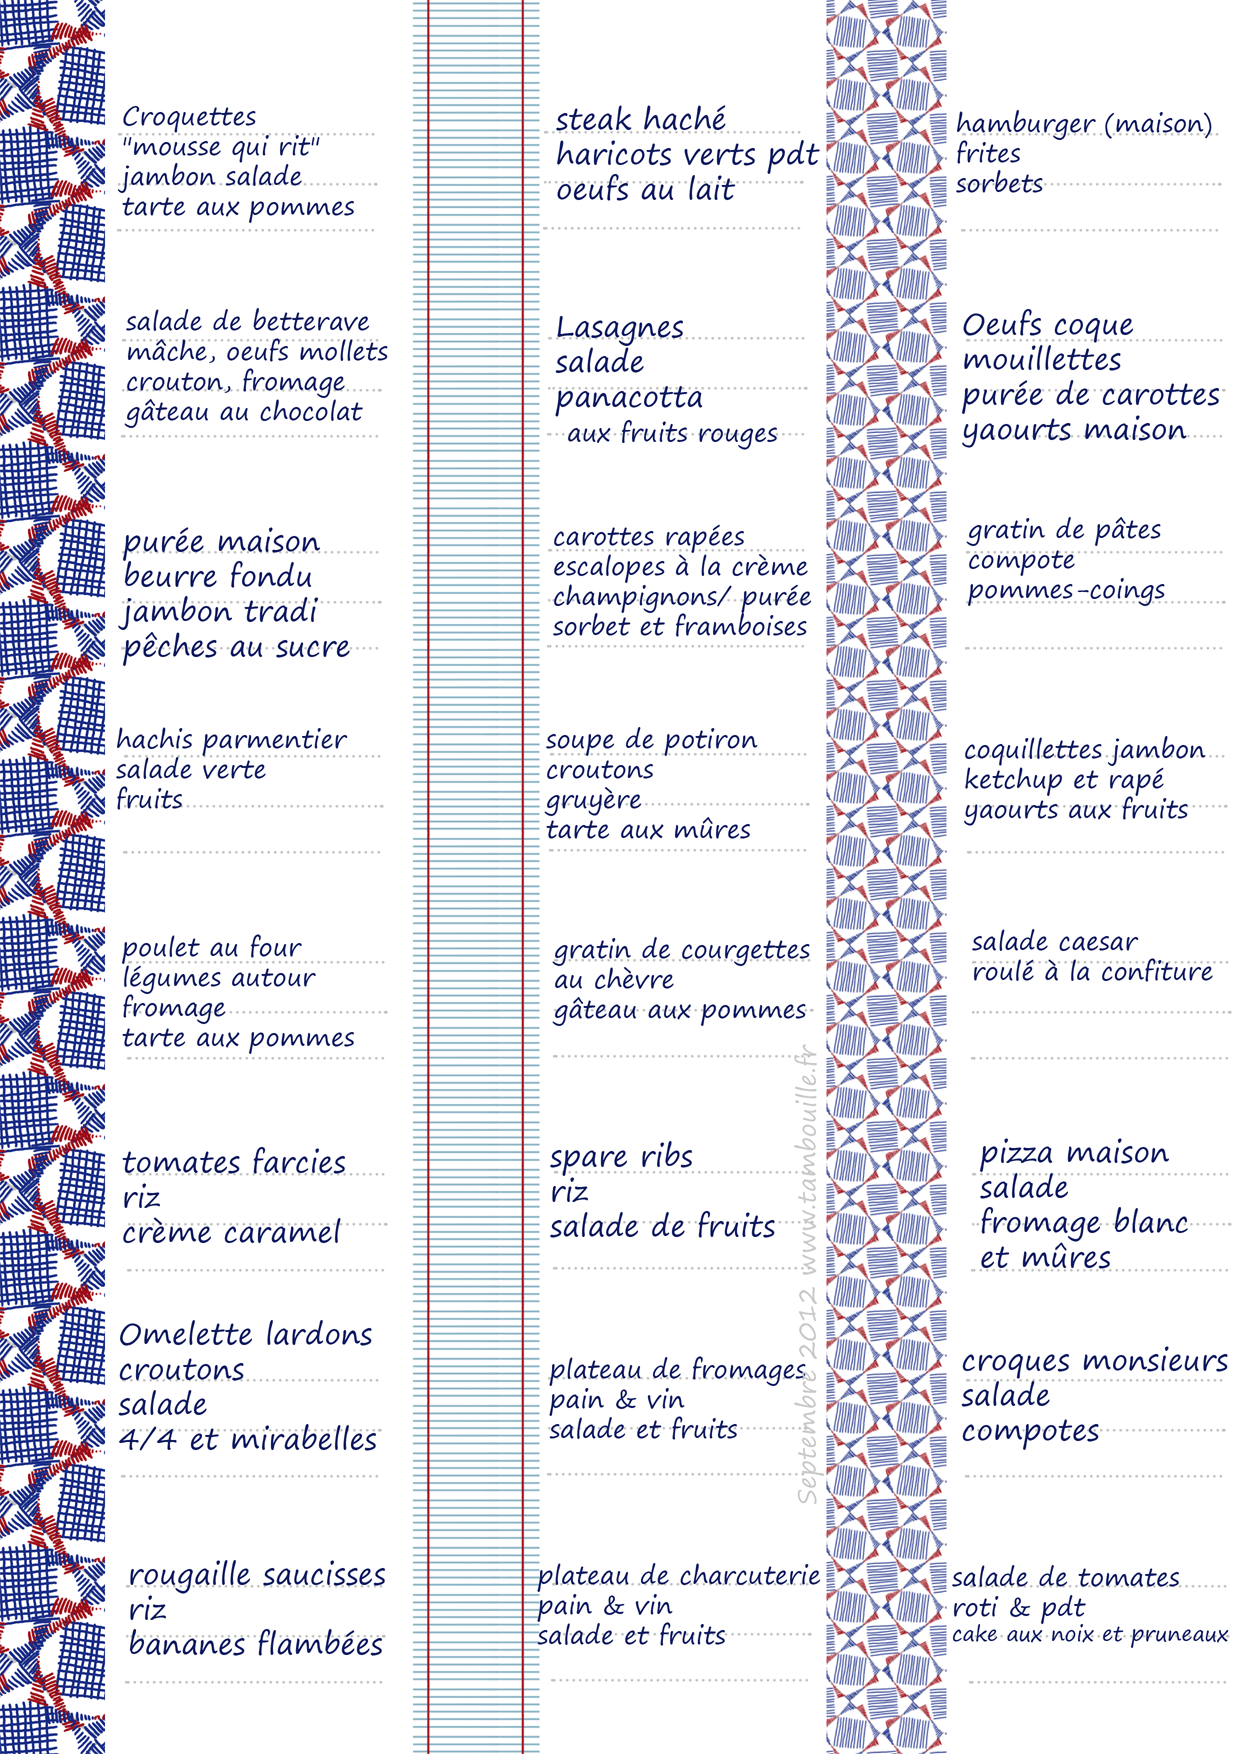 Croquettes
"mousse qui rit"
jambon salade
tarte aux pommes
steak haché
haricots verts pdt
oeufs au lait
hamburger (maison)
frites
sorbets
salade de betterave
mâche, oeufs mollets
crouton, fromage
gâteau au chocolat
Lasagnes
salade
panacotta
aux fruits rouges
Oeufs coque
mouillettes
purée de carottes
yaourts maison
purée maison
beurre fondu
jambon tradi
pêches au sucre
carottes rapées
escalopes à la crème
champignons/ purée
sorbet et framboises
gratin de pâtes
compote
pommes-coings
hachis parmentier
salade verte
fruits
soupe de potiron
croutons
gruyère
tarte aux mûres
coquillettes jambon
ketchup et rapé
yaourts aux fruits
poulet au four
légumes autour
fromage
tarte aux pommes
gratin de courgettes
au chèvre
gâteau aux pommes
salade caesar
roulé à la confiture
tomates farcies
riz
crème caramel
spare ribs
riz
salade de fruits
pizza maison
salade
fromage blanc
et mûres
Omelette lardons
croutons
salade
4/4 et mirabelles
plateau de fromages
pain & vin
salade et fruits
croques monsieurs
salade
compotes
rougaille saucisses
riz
bananes flambées
plateau de charcuterie
pain & vin
salade et fruits
salade de tomates
roti & pdt
cake aux noix et pruneaux
Septembre 2012 www.tambouille.fr